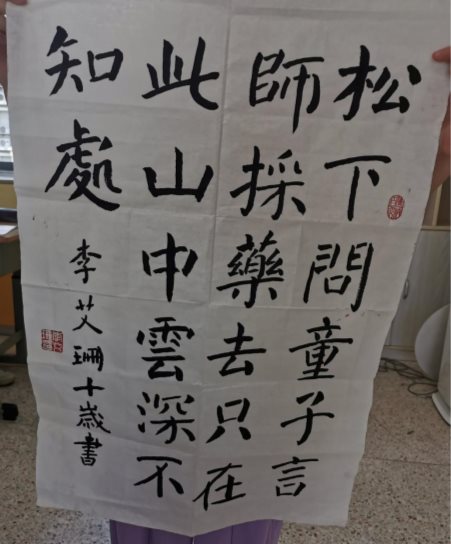 松下問童子言
師採藥去只在
此山中雲深不
知處
李艾珊十歲書